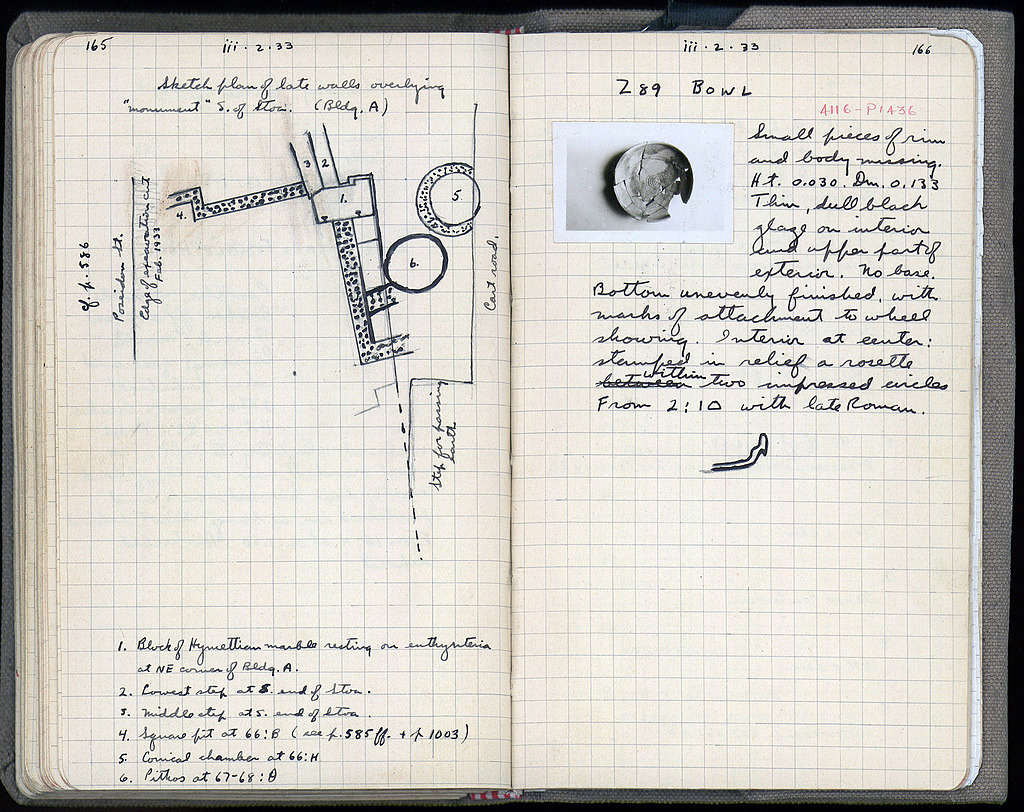 165
iii · 2 · 33
Sketch plan of late walls overlying
"monument" S. of Stoa. (Bldg. A)
cf. p. 586
Poseidon St.
Edge of excavation cut
Feb. 1933
3
2
1.
4.
5
6.
Cart road.
Step for passing
earth
1. Block of Hymettian marble resting on euthynteria
at NE corner of Bldg. A.
2. Lowest step at S. end of Stoa.
3. Middle step at S. end of Stoa.
4. Square pit at 66:B (see p. 585 ff. + p 1003)
5 Conical chamber at 66:H
6. Pithos at 67-68:Θ
iii · 2 · 33
166
Z 89 BOWL
4116-P1436
Small pieces of rim
and body missing.
Ht. 0.030. Dm. 0.133
Thin, dull black
glaze on interior
and upper part of
exterior. No base.
Bottom unevenly finished, with
marks of attachment to wheel
showing. Interior at center:
stamped in relief a rosette
between within two impressed circles
From 2:10 with late Roman.